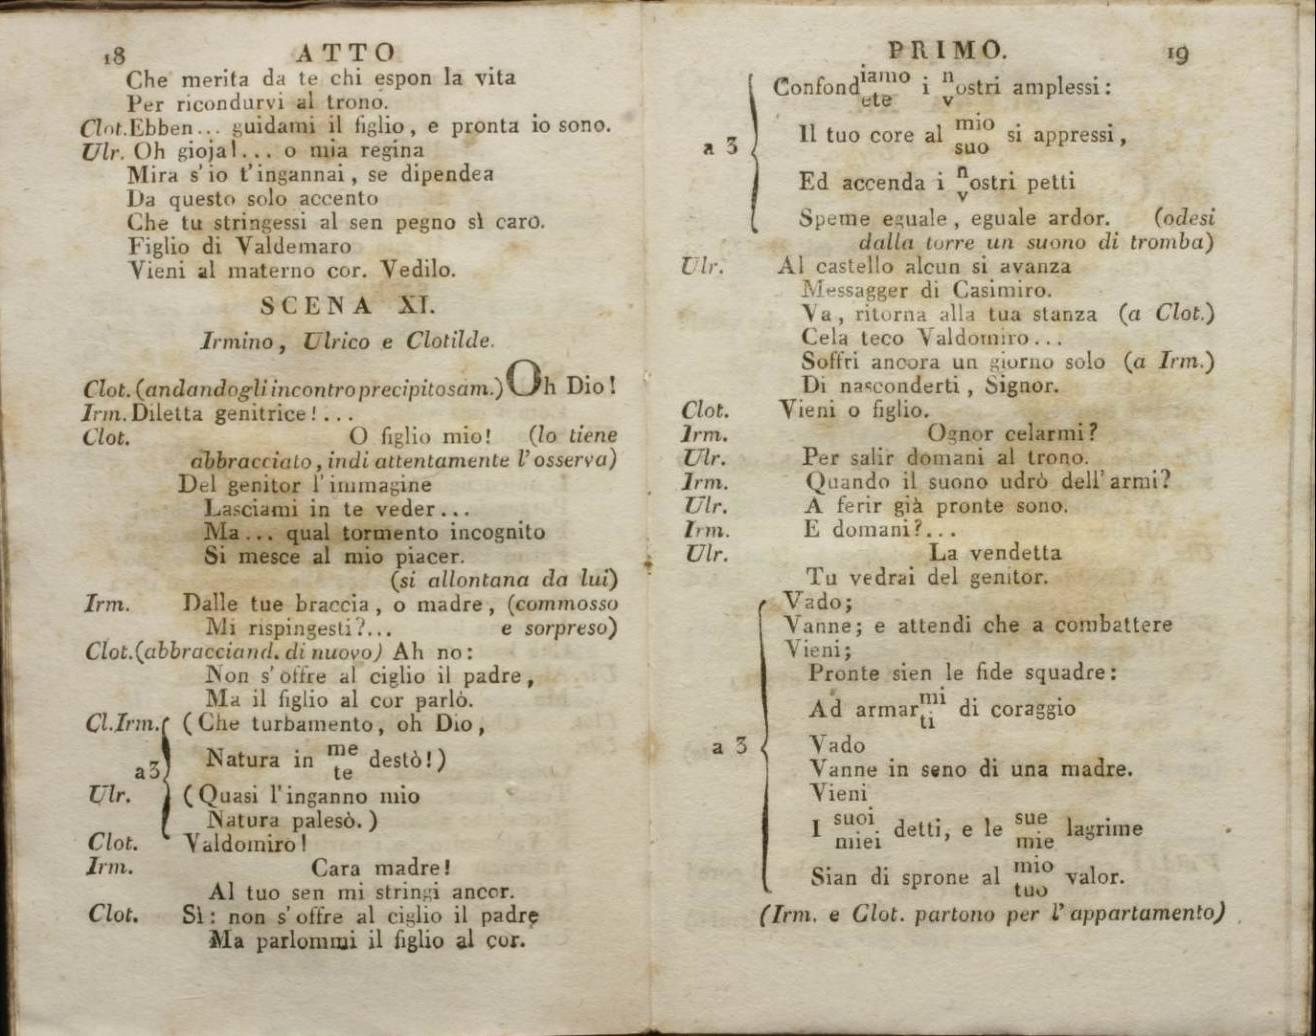 18 ATTO
Che merita da te chi espon la vita
Per ricondurvi al trono.
Clot. Ebben... guidami il figlio, e pronta io sono.
Ulr. Oh gioja!... o mia regina
Mira s'io t'ingannai, se dipendea
Da questo solo accento
Che tu stringessi al sen pegno sì caro.
Figlio di Valdemaro
Vieni al materno cor. Vedilo.
SCENA XI.
Irmino, Ulrico e Clotilde.
Clot. (andandogli incontro precipitosam.) Oh Dio!
Irm. Diletta genitrice!...
Clot. O figlio mio! (lo tiene
abbracciato, indi attentamente l'osserva)
Del genitor l'immagine
Lasciami in te veder...
Ma... qual tormento incognito
Si mesce al mio piacer.
(si allontana da lui)
Irm. Dalle tue braccia, o madre, (commosso
Mi rispingesti?... e sorpreso)
Clot. (abbracciand. di nuovo) Ah no:
Non s'offre al ciglio il padre,
Ma il figlio al cor parlò.
Cl. Irm. (Che turbamento, oh Dio,
Natura in me destò!)
a3 te
Ulr. (Quasi l'inganno mio
Natura palesò.)
Clot. Valdomiro!
Irm. Cara madre!
Al tuo sen mi stringi ancor.
Clot. Sì: non s'offre al ciglio il padre
Ma parlommi il figlio al cor.
PRIMO. 19
Confondiamo i nostri amplessi:
ete v
a 3 Il tuo core al mio si appressi,
suo
Ed accenda i nostri petti
v
Speme eguale, eguale ardor. (odesi
dalla torre un suono di tromba)
Ulr. Al castello alcun si avanza
Messagger di Casimiro.
Va, ritorna alla tua stanza (a Clot.)
Cela teco Valdomiro...
Soffri ancora un giorno solo (a Irm.)
Di nasconderti, Signor.
Clot. Vieni o figlio.
Irm. Ognor celarmi?
Ulr. Per salir domani al trono.
Irm. Quando il suono udrò dell'armi?
Ulr. A ferir già pronte sono.
Irm. E domani?...
Ulr. La vendetta
Tu vedrai del genitor.
Vado;
Vanne; e attendi che a combattere
Vieni;
Pronte sien le fide squadre:
Ad armarmi di coraggio
ti
a 3 Vado
Vanne in seno di una madre.
Vieni
I suoi detti, e le sue lagrime
miei mie
Sian di sprone al mio valor.
tuo
(Irm. e Clot. partono per l'appartamento)